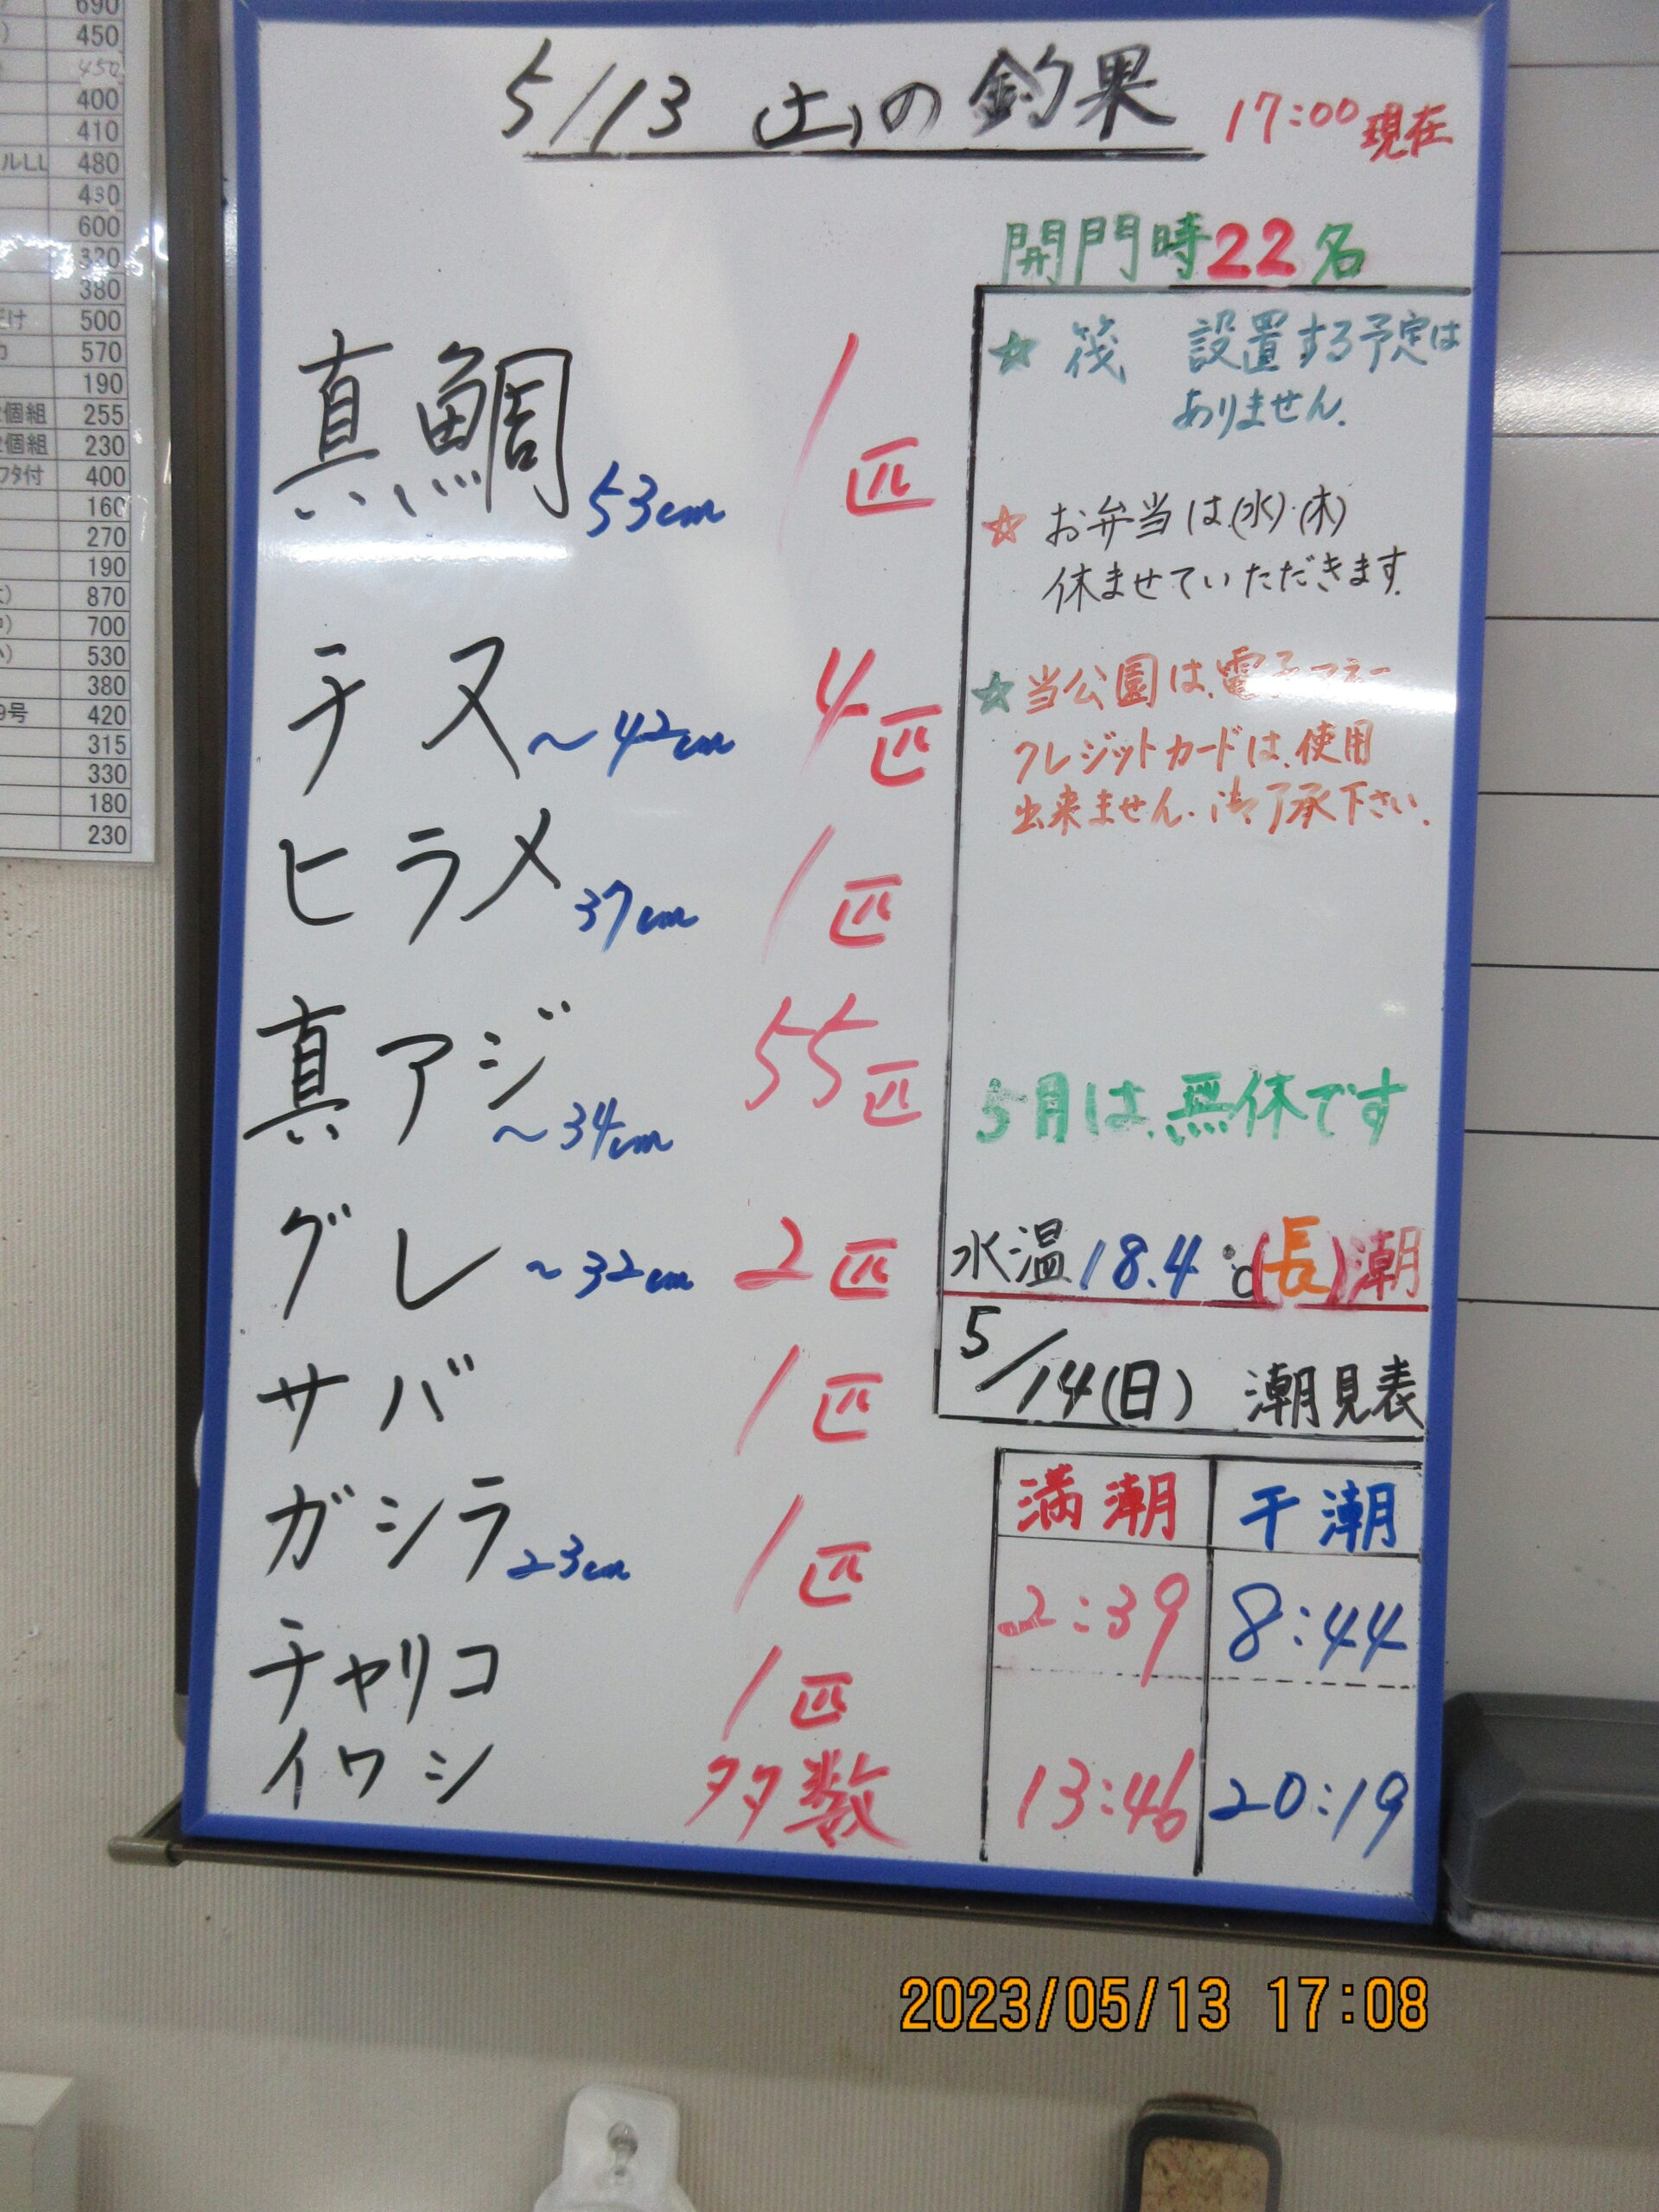 690
450
450
400
410
ルLL 480
430
600
320
380
500
570
190
個組 255
個組 230
フタ付 400
160
270
190
870
700
530
380
9号 420
315
330
180
230
5/13 (土)の釣果 17:00現在
開門時22名
☆ 筏 設置する予定は
ありません.
☆ お弁当は(水)・(木)
休ませていただきます.
☆ 当公園は、電子マネー
クレジットカードは、使用
出来ません. 御了承下さい.
5月は、無休です
水温 18.4℃ (長)潮
5/14(日) 潮見表
満潮 干潮
2:39 8:44
13:46 20:19
真鯛 53cm 1匹
チヌ ~42cm 4匹
ヒラメ 37cm 1匹
真アジ ~34cm 55匹
グレ ~32cm 2匹
サバ 1匹
ガシラ 23cm 1匹
チャリコ 1匹
イワシ 多数
2023/05/13 17:08